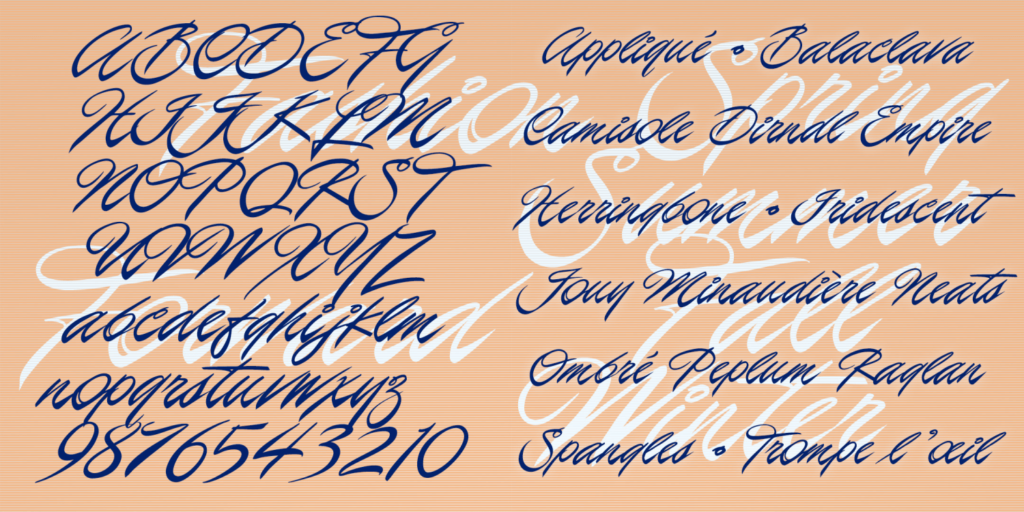 ABCDEFG
HIJKLM
NOPQRST
UVWXYZ
abcdefghijklm
nopqrstuvwxyz
9876543210
Fashion
Forward
Appliqué • Balaclava
Camisole Dirndl Empire
Herringbone • Iridescent
Jouy Minaudière Neats
Ombré Peplum Raglan
Spangles • Trompe l’œil
Spring
Summer
Fall
Winter